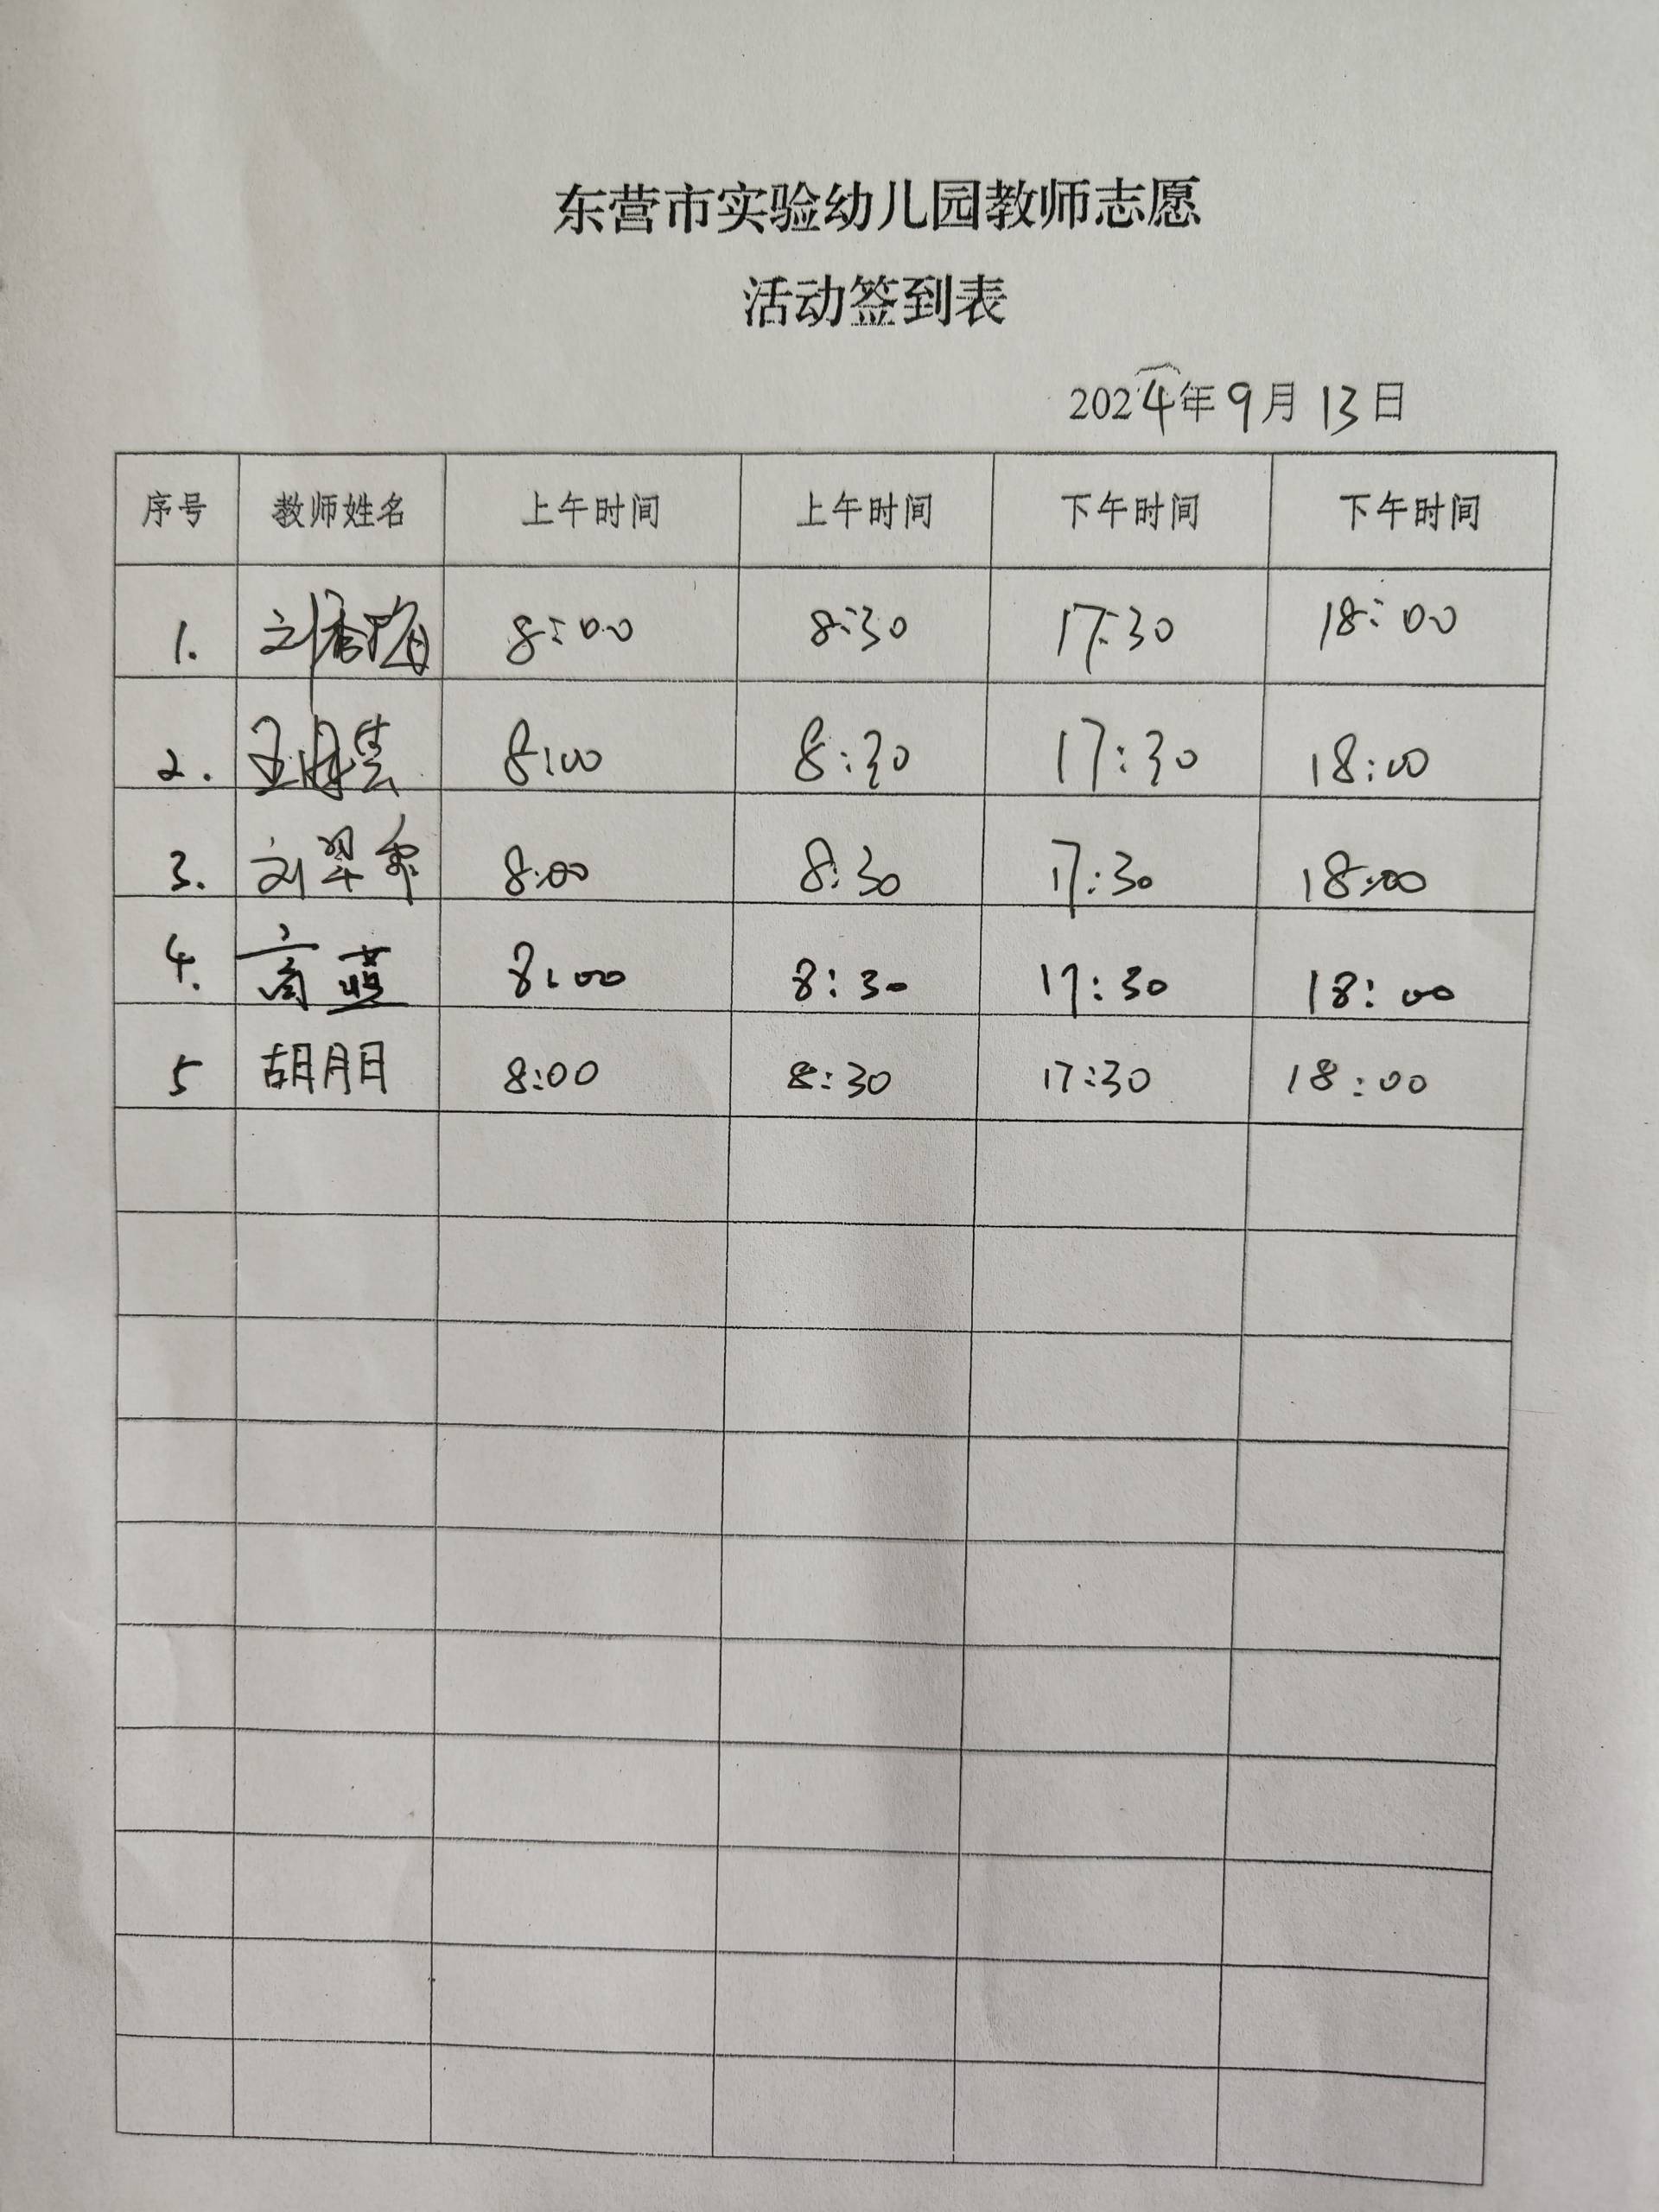 东营市实验幼儿园教师志愿
活动签到表
2024年9月13日
序号 教师姓名 上午时间 上午时间 下午时间 下午时间
1. 刘香梅 8:00 8:30 17:30 18:00
2. 8:00 8:30 17:30 18:00
3. 刘翠 8:00 8:30 17:30 18:00
4. 高蓝 8:00 8:30 17:30 18:00
5 胡月 8:00 8:30 17:30 18:00